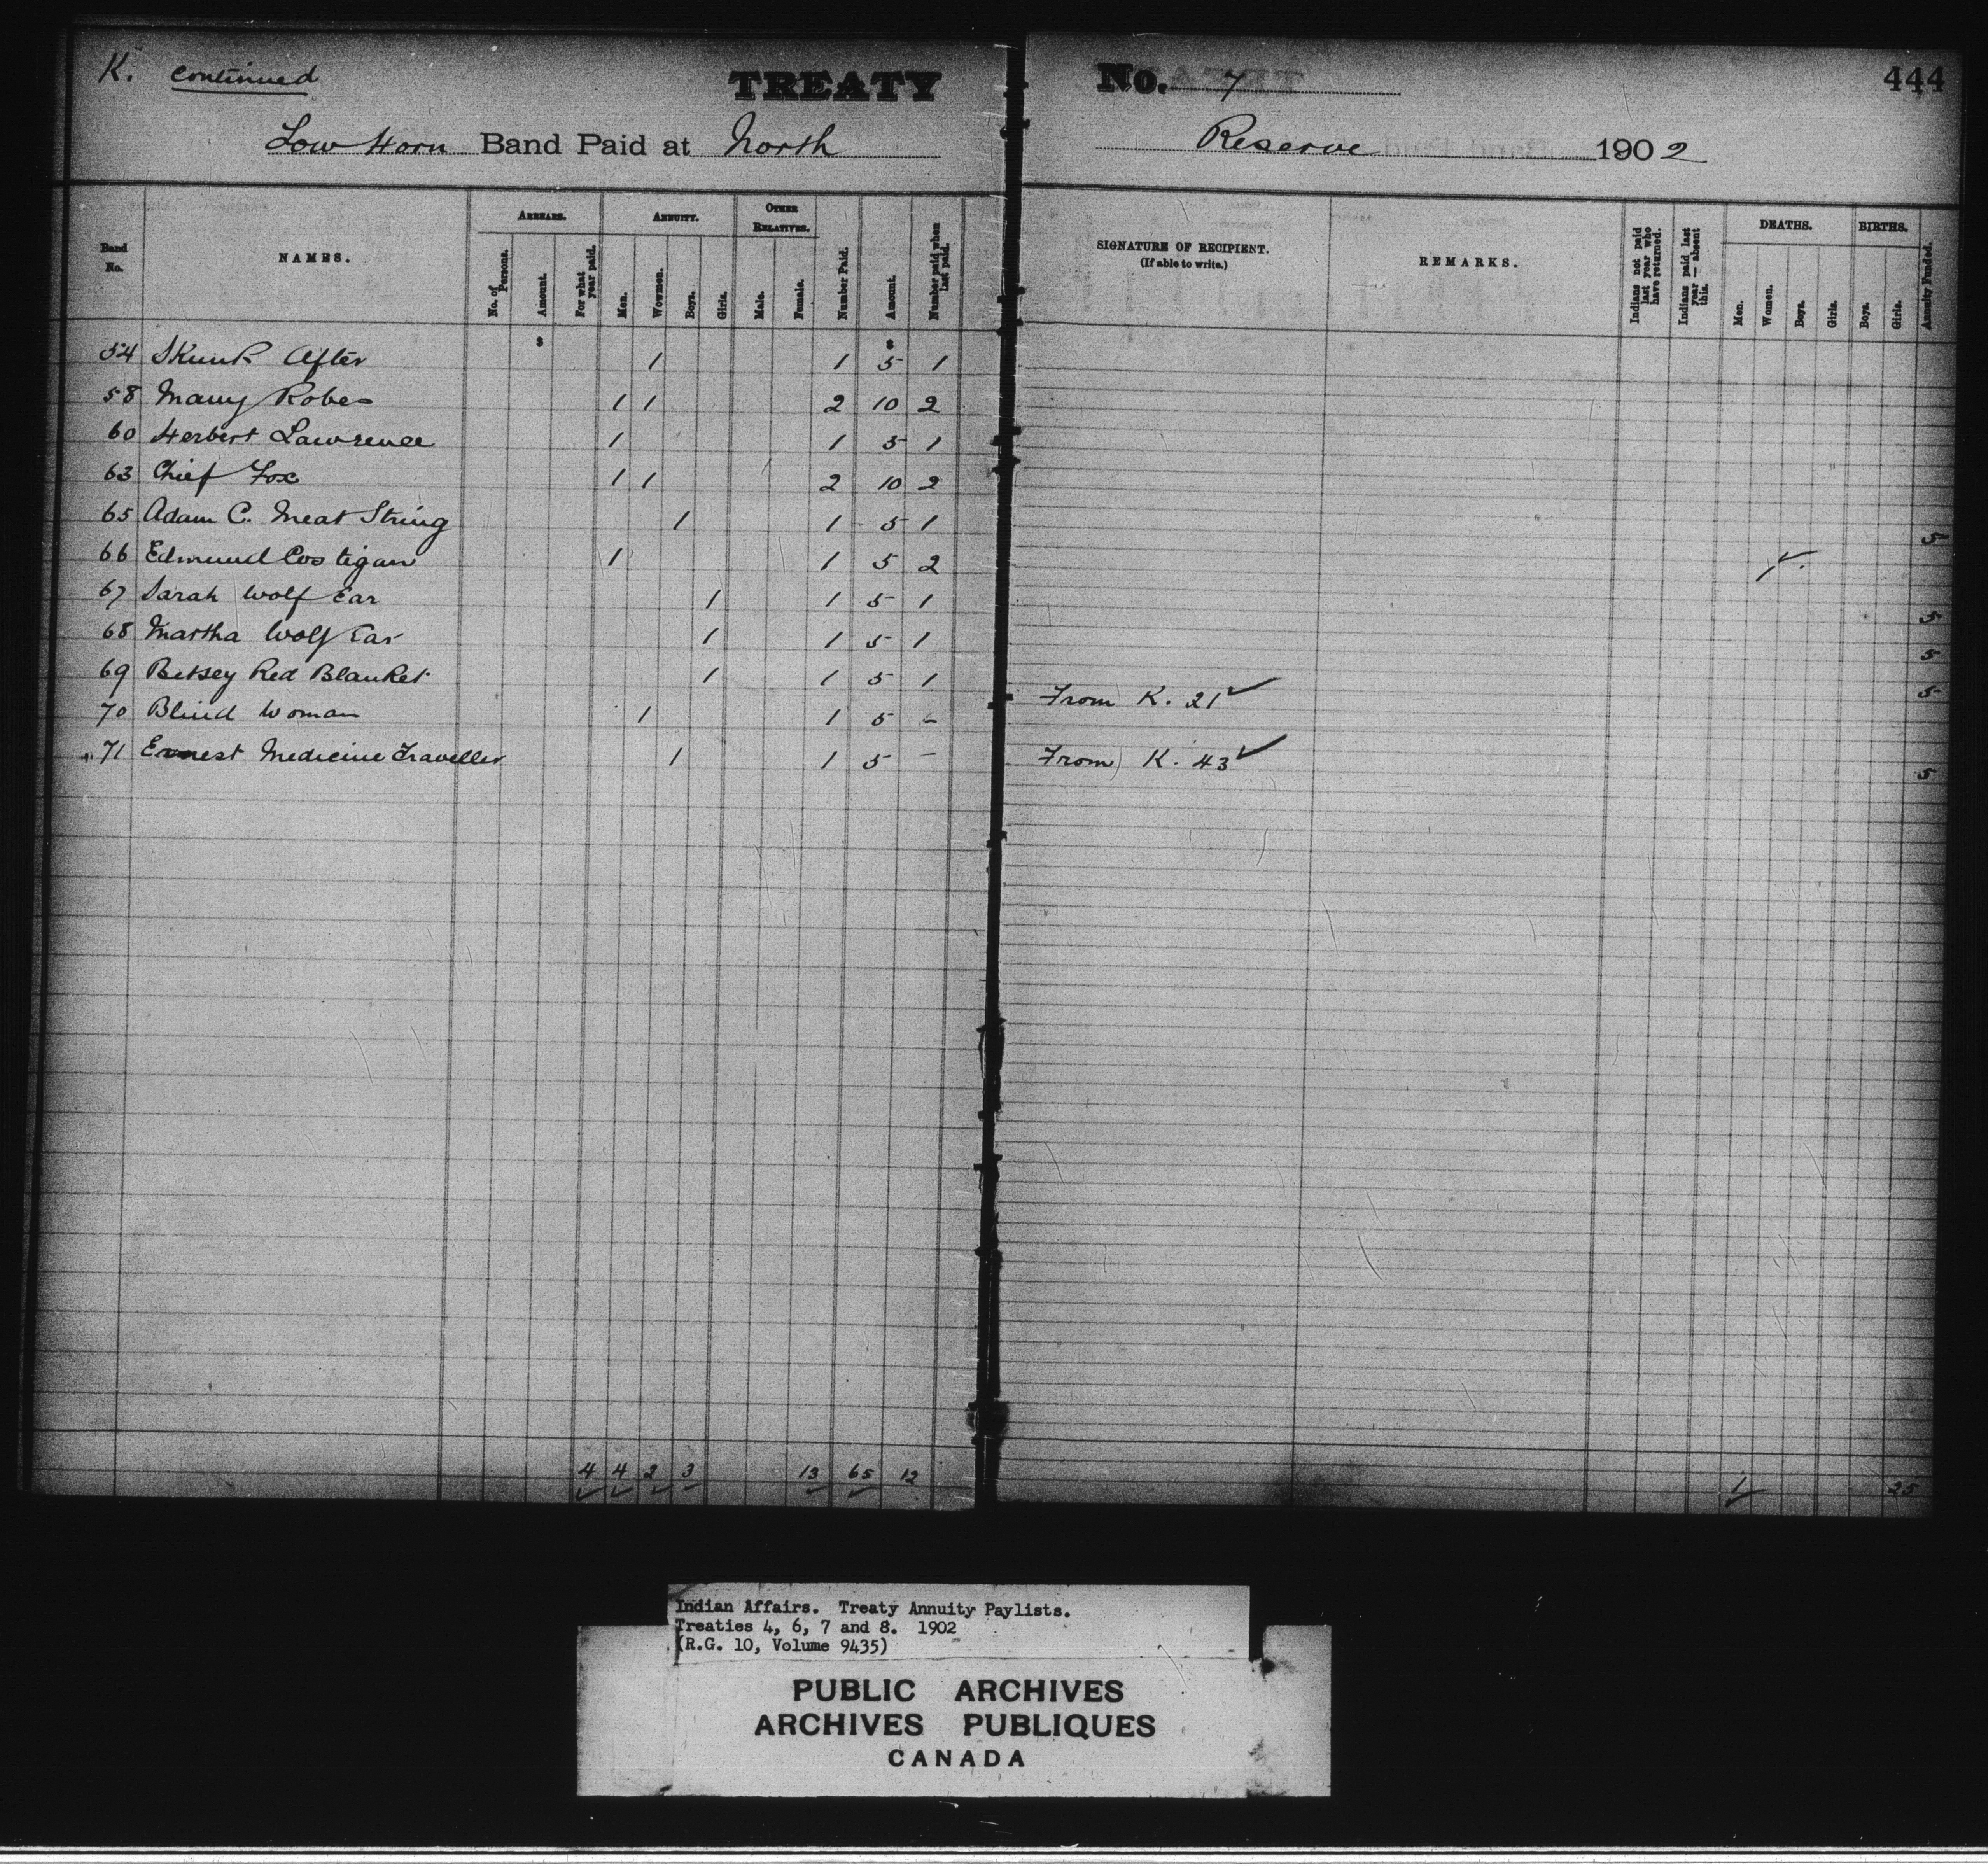 K. continued
TREATY No. 7 444
Low Horn Band Paid at North Reserve 1902
Band No. NAMES. ARREARS. ANNUITY. OTHER RELATIVES. Number Paid. Amount. Number paid when last paid. SIGNATURE OF RECIPIENT. (If able to write.) REMARKS. Indians not paid last year who have returned. Indians paid last year — absent this. DEATHS. BIRTHS. Annuity Funded.
No. of Persons. Amount. For what year paid. Men. Wowmen. Boys. Girls. Male. Female. Men. Women. Boys. Girls. Boys. Girls.
$ $
54 Skunk After 1 1 5 1
58 Many Robes 1 1 2 10 2
60 Herbert Lawrence 1 1 5 1
63 Chief Fox 1 1 2 10 2
65 Adam C. Meat String 1 1 5 1 5
66 Edmund Costigan 1 1 5 2 1 ✓
67 Sarah Wolf Ear 1 1 5 1 5
68 Martha Wolf Ear 1 1 5 1 5
69 Betsey Red Blanket 1 1 5 1 5
70 Blind Woman 1 1 5 – From K. 21 ✓
71 Ernest Medicine Traveller 1 1 5 – From K. 43 ✓ 5
4 4 2 3 13 65 12 1 25
Indian Affairs. Treaty Annuity Paylists.
Treaties 4, 6, 7 and 8. 1902
(R.G. 10, Volume 9435)
PUBLIC ARCHIVES
ARCHIVES PUBLIQUES
CANADA